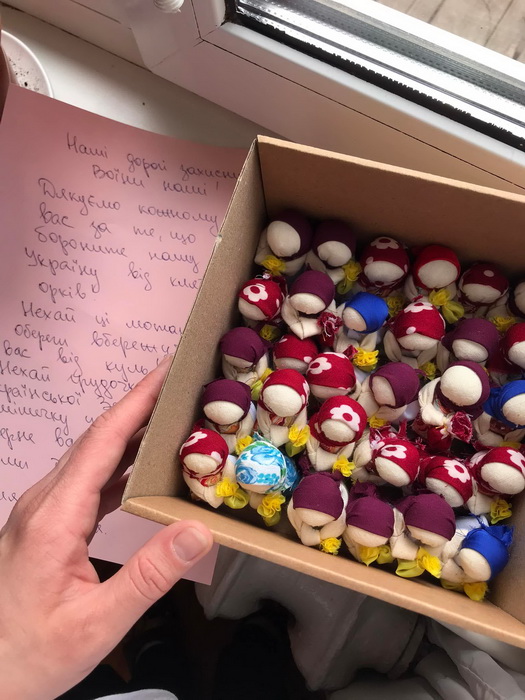 Наші дорогі захисн
Воїни наші!
Дякуємо кожному
вас за те, що
бороните нашу
Україну від
орків
Нехай ці мотан
оберег вбереж
вас від куль
Нехай грудочк
країнської
мішечку
ерне ва